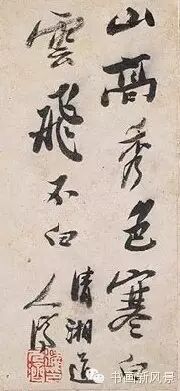 山高秀色寒
雲飛不白
清湘道
人濟
书画新风景